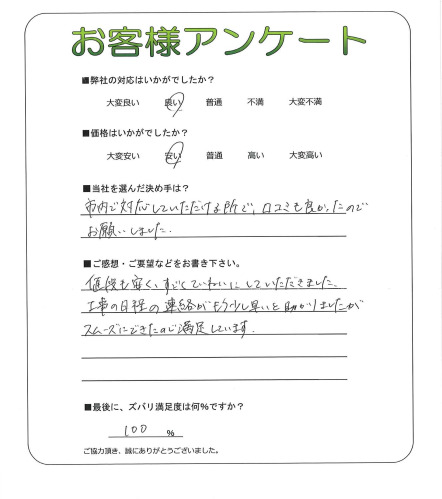 お客様アンケート
■弊社の対応はいかがでしたか？
大変良い 良い 普通 不満 大変不満
■価格はいかがでしたか？
大変安い 安い 普通 高い 大変高い
■当社を選んだ決め手は？
市内で対応していただける所で、口コミも良かったので
お願いしました。
■ご感想・ご要望などをお書き下さい。
値段も安く、すごくていねいにしていただきました。
工事の日程の連絡がもう少し早いと助かりましたが
スムーズにできたので満足しています。
■最後に、ズバリ満足度は何%ですか？
100 %
ご協力頂き、誠にありがとうございました。